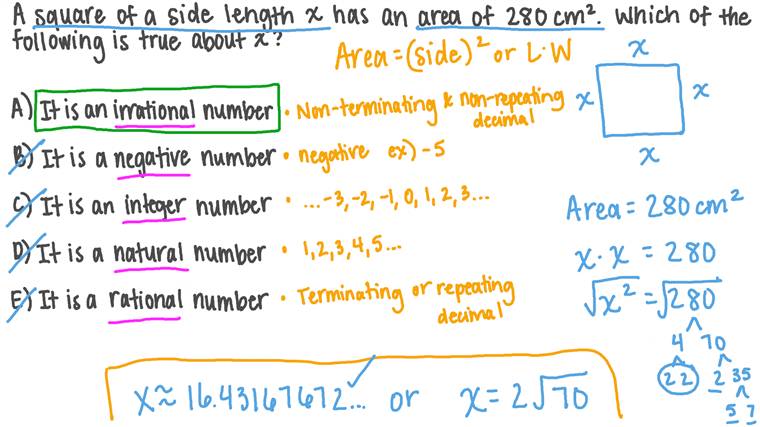 A square of a side length x has an area of 280 cm². Which of the
following is true about x?
Area = (side)² or L·W
x
x
x
x
A) It is an irrational number • Non-terminating & non-repeating
decimal
B) It is a negative number • negative ex) -5
C) It is an integer number • ...-3, -2, -1, 0, 1, 2, 3...
D) It is a natural number • 1, 2, 3, 4, 5...
E) It is a rational number • Terminating or repeating
decimal
Area = 280 cm²
x · x = 280
√x² = √280
4 70
2 2 2 35
5 7
x ≈ 16.43167672... ✓ or x = 2√70